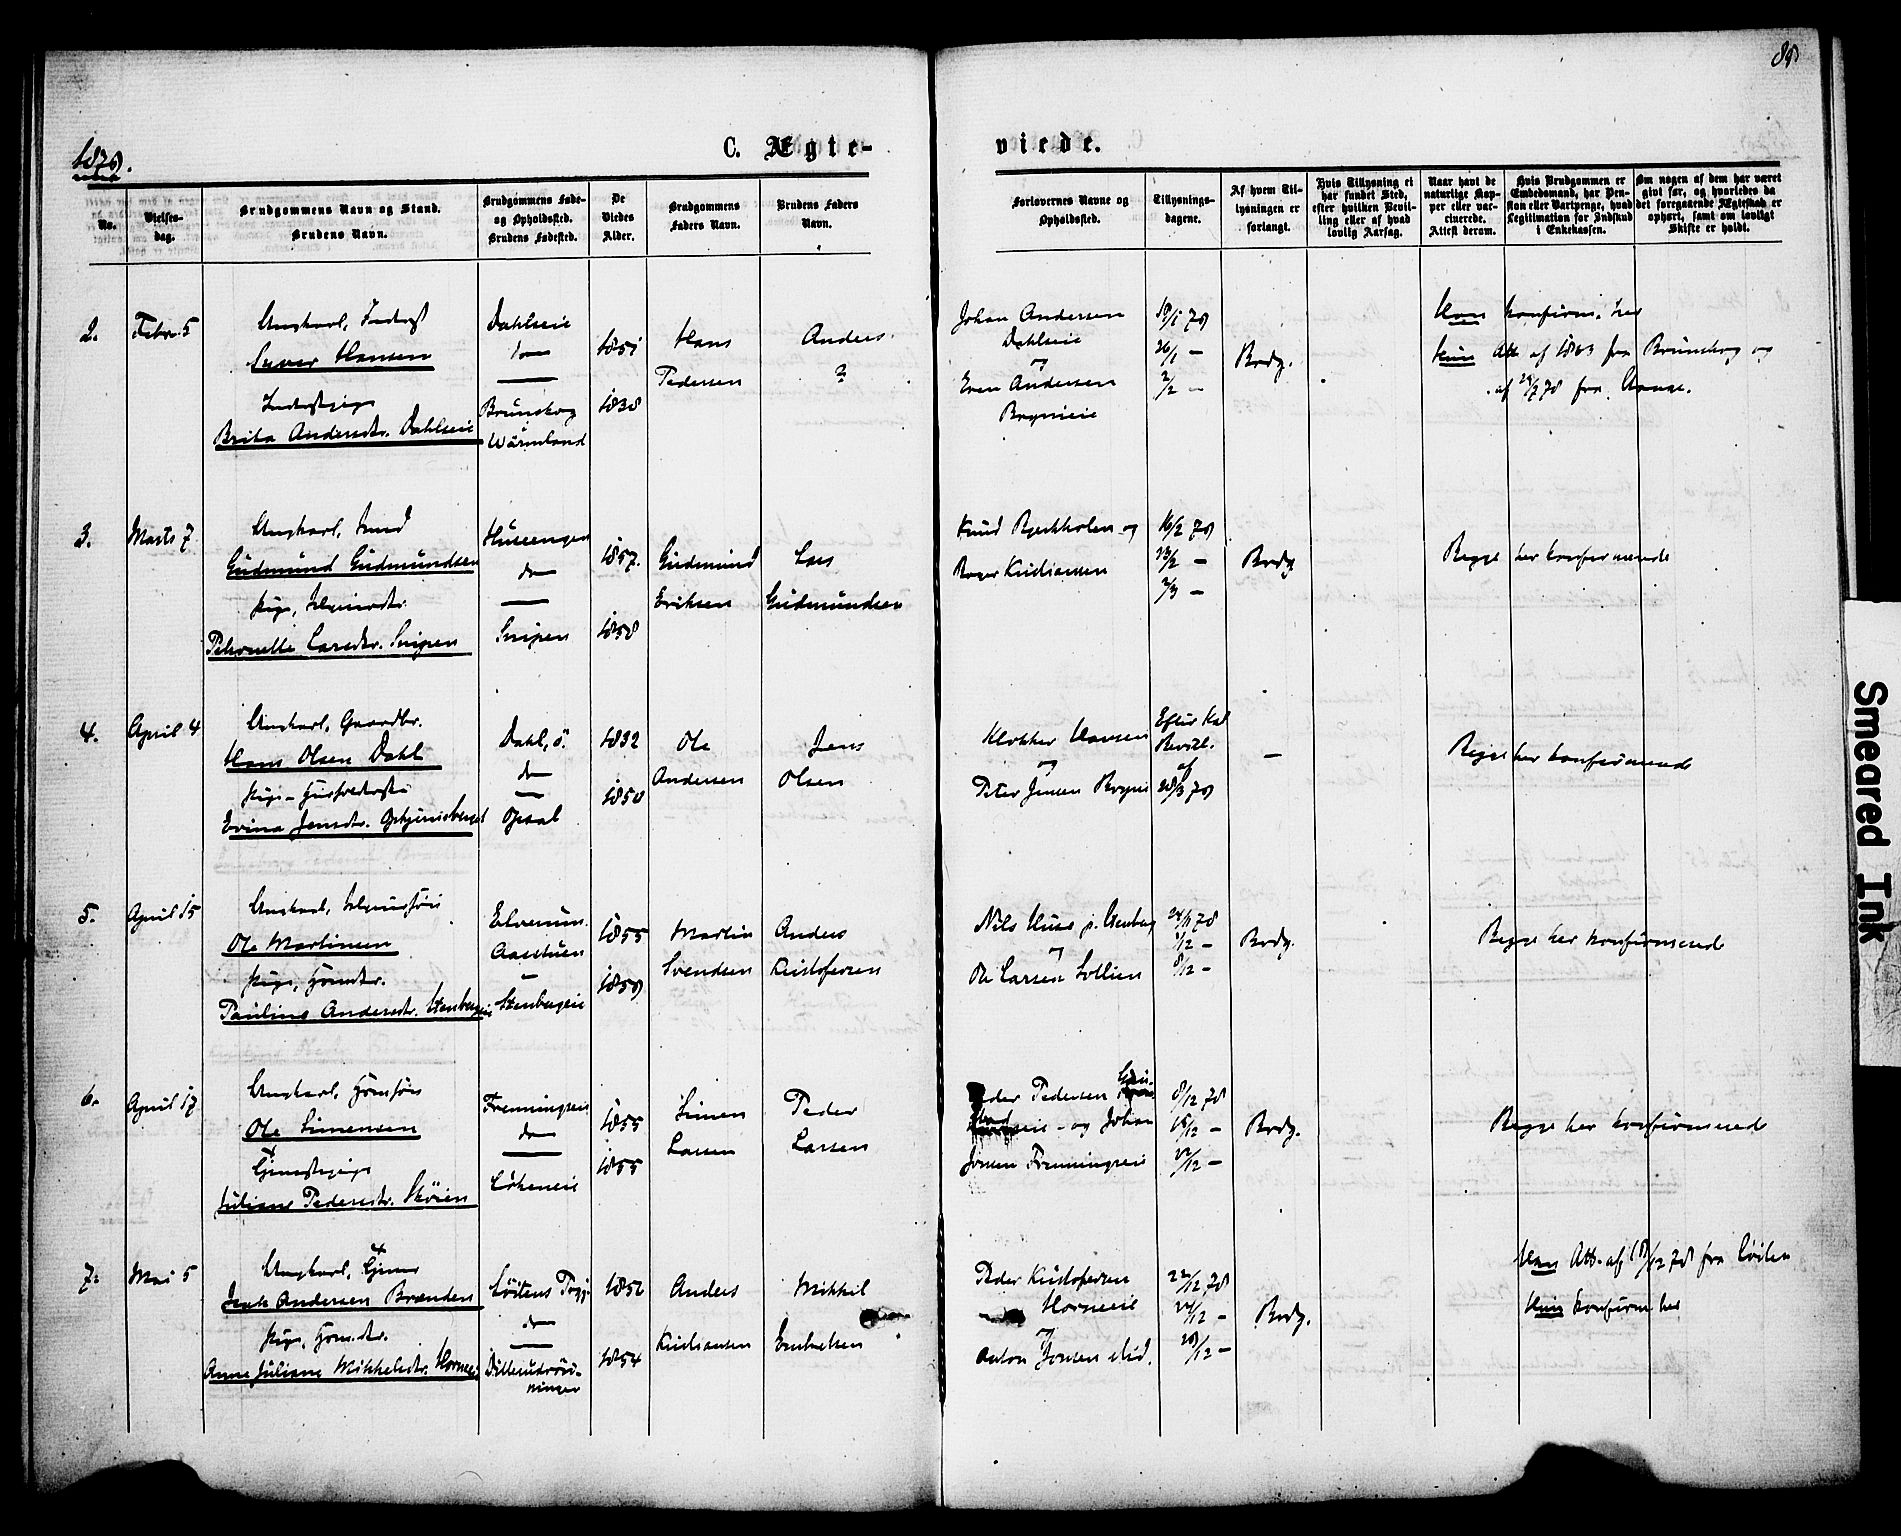 1879.
C. Ægte-
viede.
No.
Vielses-
dag.
Brudgommens Navn og Stand.
Brudens Navn.
Brudgommens Føde-
og Opholdssted.
Brudens Fødested.
De
Viedes
Alder.
Brudgommens
Faders Navn.
Brudens Faders
Navn.
Forlovernes Navne og
Opholdssted.
Tillysnings-
dagene.
Af hvem Til-
lysningen er
forlangt.
Hvis Tillysning ei
har fundet Sted,
efter hvilken Bevil-
ling eller af hvad
lovlig Aarsag.
Naar havt de
naturlige Kop-
per eller vac-
cinerede.
Attest derom.
Hvis Brudgommen er
Embedsmand, har Pen-
sion eller Vartpenge, hvad
Legitimation for Indskud
i Enkekassen.
Om nogen af dem har været
gift før, og hvorledes da
det foregaaende Ægteskab er
ophørt, samt om lovligt
Skifte er holdt.
2.
Febr. 5
Ungkarl, Inderst
Iver Hansen
Inderstpige
Brita Andersdtr. Dahlseie
Dahlseie
do
Brunskog
Wärmland
1851
1838
Hans
Pedersen
Anders
?
Johan Andersen
Dahlseie
og
Even Andersen
Brynieie
19/1 79
26/1 —
2/2 —
Brdg.
Han konfirm. her
Hun Att. af 1863 fra Brunskog og
3.
Marts 7
Ungkarl,
Gudmund Gudmundsen
Pige,
Petronelle Larsdtr. Snipen
do
Snipen
1857.
1858
Gudmund
Eriksen
Lars
Gudmundsen
Knud Bjerkholen og
Roger Kristiansen
16/2 79
23/2 —
2/3 —
Brdg.
Begge her konfirmerede
4.
April 4
Ungkarl, Gaardbr.
Hans Olsen Dahl
Evina Jensdtr.
Dahl, ö.
do
Opsal
1832
1850
Ole
Andersen
Jens
Olsen
Klokker Hansen
og
Peter Jensen
Efter Kgl
Bevill.
af
28/3 79
—
Begge her konfirmerede
5.
April 15
Ungkarl,
Ole Martinsen
Pige, Husmdtr.
Pauline Andersdtr. Stenbergeie
Elverum.
Aastuen
—
Stenbergeie
1855
1859
Martin
Svendsen
Anders
Kristofersen
Nils Huus p. Stenberg
og
Ole Larsen Lillien
24/11 78
1/12 —
8/12 —
Brdg.
Begge her konfirmerede
6.
April 17
Ungkarl,
Ole Simensen
Juliane Pedersdtr. Skóien
Frenningseie
do
Lökeneie
1855
1855
Simen
Larsen
Peder
Larsen
Peder Pedersen
og Johan
Jonsen Frenningseie
8/12 78
15/12 —
22/12 —
Brdg.
Begge her konfirmerede
7.
Mai 5
Ungkarl,
Andersen Brænden
Pige, Husm.dtr.
Anne Juliane Mikkelsdtr. Horneeie
Löitens Prgj.
do
1856
1854
Anders
Kristiansen
Mikkel
Embretsen
Peder Kristofersen
Horneeie
og
Anton Jonsen ibid.
22/12 78
Brdg.
Han Att. af 18/12 78 fra Löiten
Hun konfirm. her
Smeared Ink